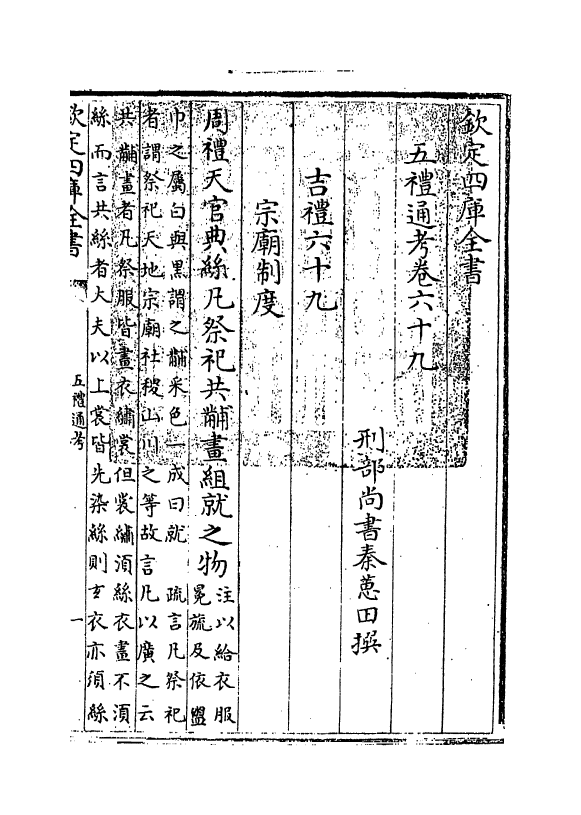 欽定四庫全書
五禮通考卷六十九
刑部尚書秦蕙田撰
吉禮六十九
宗廟制度
周禮天官典絲凡祭祀共黼畫組就之物
注以給衣服
冕旒及依盥
巾之屬白與黑謂之黼采色一成曰就　疏言凡祭祀
者謂祭祀天地宗廟社稷山川之等故言凡以廣之云
共黼畫者凡祭服皆畫衣繡裳但裳繡須絲衣畫不須
絲而言共絲者大夫以上裳皆先染絲則玄衣亦須絲
欽定四庫全書
五禮通考
一